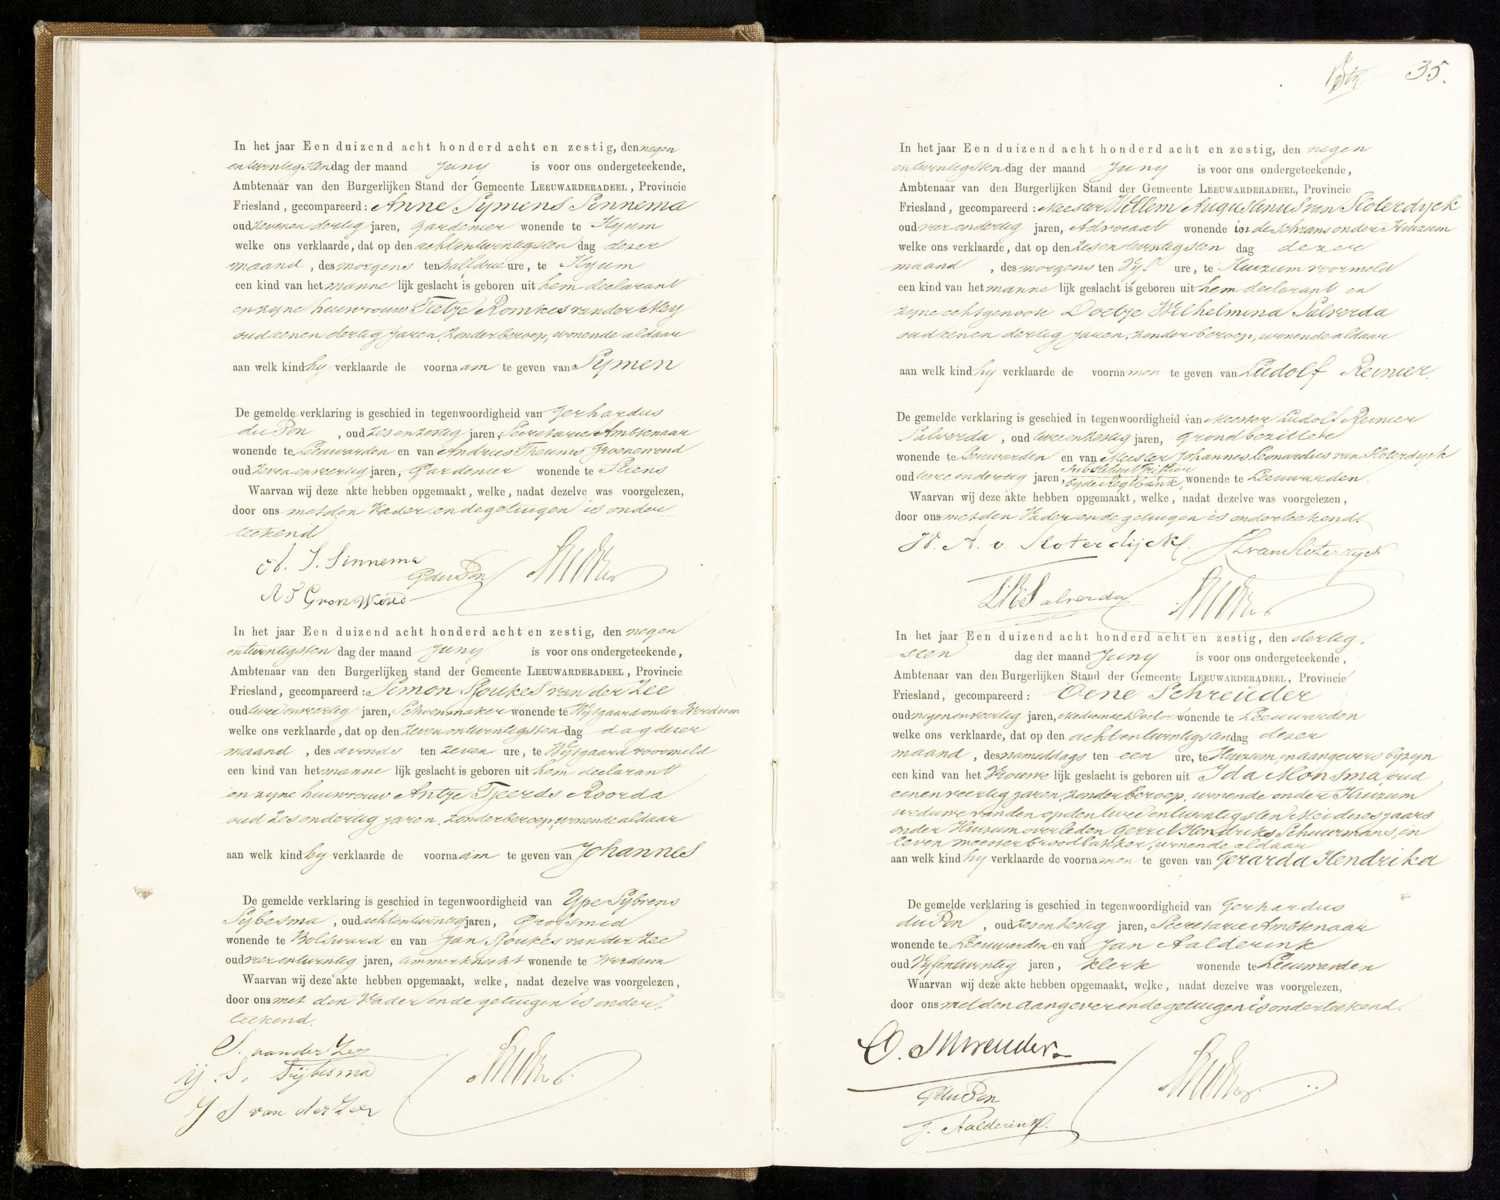 In het jaar Een duizend acht honderd acht en zestig, den negen
entwintigsten dag der maand Juny is voor ons ondergeteekende,
Ambtenaar van den Burgerlijken Stand der Gemeente LEEUWARDERADEEL, Provincie
Friesland, gecompareerd: Anne Symens Sinnema
oud zevenendertig jaren, Gardenier wonende te Hyum
welke ons verklaarde, dat op den achtentwintigsten dag dezer
maand, des morgens ten half drie ure, te Hyum
een kind van het manne lijk geslacht is geboren uit hem declarant
en zyne huisvrouw Tietje Romkes van der Mey
oud eenen dertig jaren, zonder beroep, wonende aldaar
aan welk kind hy verklaarde de voornaam te geven van Symen
De gemelde verklaring is geschied in tegenwoordigheid van Gerhardus
du Pon, oud zesenzestig jaren, Secretarie Ambtenaar
wonende te Leeuwarden en van Andries Theunis Groenewoud
oud zevenenveertig jaren, Gardenier wonende te Stiens
Waarvan wij deze akte hebben opgemaakt, welke, nadat dezelve was voorgelezen,
door ons met den Vader en de getuigen is onder
teekend
A. S. Sinnema
GduPon
A T Gronwoud
In het jaar Een duizend acht honderd acht en zestig, den negen
entwintigsten dag der maand Juny is voor ons ondergeteekende,
Ambtenaar van den Burgerlijken stand der Gemeente LEEUWARDERADEEL, Provincie
Friesland, gecompareerd: Simon Sjoukes van der Zee
oud twee enveertig jaren, Schoenmaker wonende te Wytgaard onder Wirdum
welke ons verklaarde, dat op den zevenentwintigsten dag dag dezer
maand, des avonds ten zeven ure, te Wytgaard voormeld
een kind van het manne lijk geslacht is geboren uit hem declarant
en zyne huisvrouw Antje Tjeerds Roorda
oud zesendertig jaren, zonder beroep, wonende aldaar
aan welk kind hy verklaarde de voornaam te geven van Johannes
De gemelde verklaring is geschied in tegenwoordigheid van Ype Sybrens
Sybesma, oud achtentwintig jaren, Grofsmid
wonende te Bolsward en van Jan Sjoukes van der Zee
oud vierentwintig jaren, timmerknecht wonende te Wirdum
Waarvan wij deze akte hebben opgemaakt, welke, nadat dezelve was voorgelezen,
door ons met den Vader en de getuigen is onder
teekend.
S. van der Zee
IJ. S. Sijbesma
J S van der Zee
35.
In het jaar Een duizend acht honderd acht en zestig, den negen
entwintigsten dag der maand Juny is voor ons ondergeteekende,
Ambtenaar van den Burgerlijken Stand der Gemeente LEEUWARDERADEEL, Provincie
Friesland, gecompareerd: Meester Willem Augustinus van Sloterdyck
oud vierendertig jaren, Advocaat wonende in de Schrans onder Huizum
welke ons verklaarde, dat op den zesentwintigsten dag dezer
maand, des morgens ten vyf ure, te Huizum voormeld
een kind van het manne lijk geslacht is geboren uit hem declarant en
zyne echtgenoote Doetje Wilhelmina Salverda
oud eenen dertig jaren, zonder beroep, wonende aldaar
aan welk kind hy verklaarde de voornamen te geven van Ludolf Reinier.
De gemelde verklaring is geschied in tegenwoordigheid van Meester Ludolf Reinier
Salverda, oud tweeenzestig jaren, Grondbezitter
wonende te Leeuwarden en van Meester Johannes Leonardus van Sloterdyck
oud tweeendertig jaren, Substituut Griffier by de Regtbank, wonende te Leeuwarden.
Waarvan wij deze akte hebben opgemaakt, welke, nadat dezelve was voorgelezen,
door ons met den Vader en de getuigen is onderteekend.
W. A. v Sloterdijck.
JLvanSloterdyck
LRSalverda
In het jaar Een duizend acht honderd acht en zestig, den dertig
sten dag der maand Juny is voor ons ondergeteekende,
Ambtenaar van den Burgerlijken Stand der Gemeente LEEUWARDERADEEL, Provincie
Friesland, gecompareerd: Oene Schreuder
oud negenenveertig jaren, Medicinae Doctor wonende te Leeuwarden
welke ons verklaarde, dat op den achtentwintigsten dag dezer
maand, des namiddags ten een ure, te Huizum, in aangevers byzyn
een kind van het Vrouwe lijk geslacht is geboren uit Ida Monsma, oud
eenenveertig jaren, zonder beroep, wonende onder Huizum
weduwe van den op den tweeentwintigsten Mei dezes jaars
onder Huizum overleden Gerrit Hendriks Schuurmans, in
leven meesterbroodbakker, wonende aldaar
aan welk kind hy verklaarde de voornamen te geven van Gerarda Hendrika
De gemelde verklaring is geschied in tegenwoordigheid van Gerhardus
du Pon, oud zesenzestig jaren, Secretarie Ambtenaar
wonende te Leeuwarden en van Jan Aalderink
oud vyfentwintig jaren, Klerk wonende te Leeuwarden
Waarvan wij deze akte hebben opgemaakt, welke, nadat dezelve was voorgelezen,
door ons met den aangever en de getuigen is onderteekend.
O. Schreuder
GduPon
J. Aalderink.